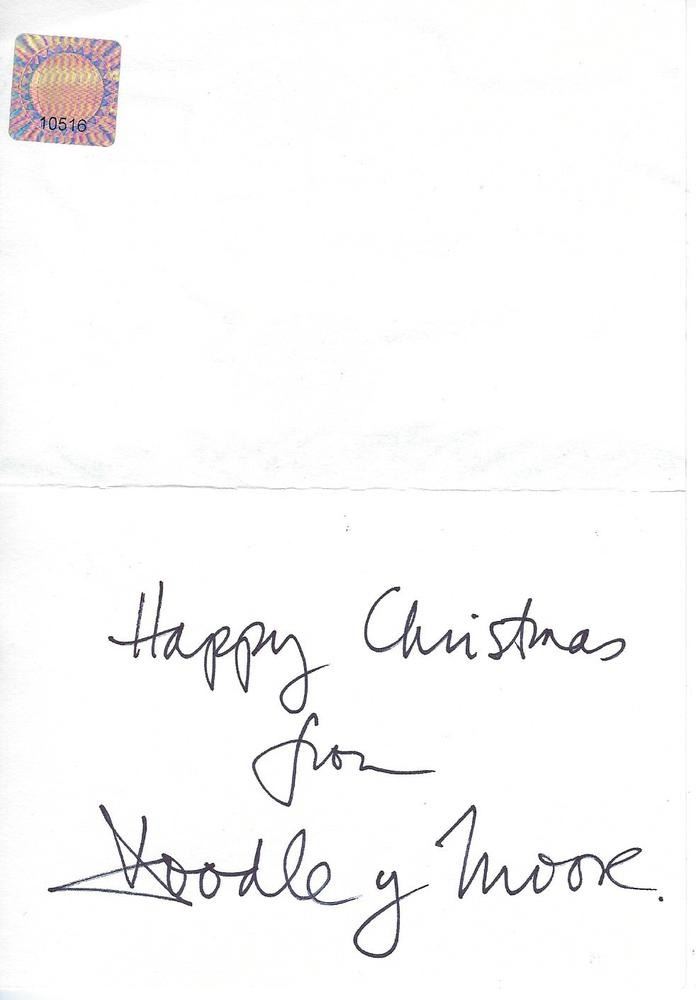 10516
Happy Christmas
from
Doodle y Moore.